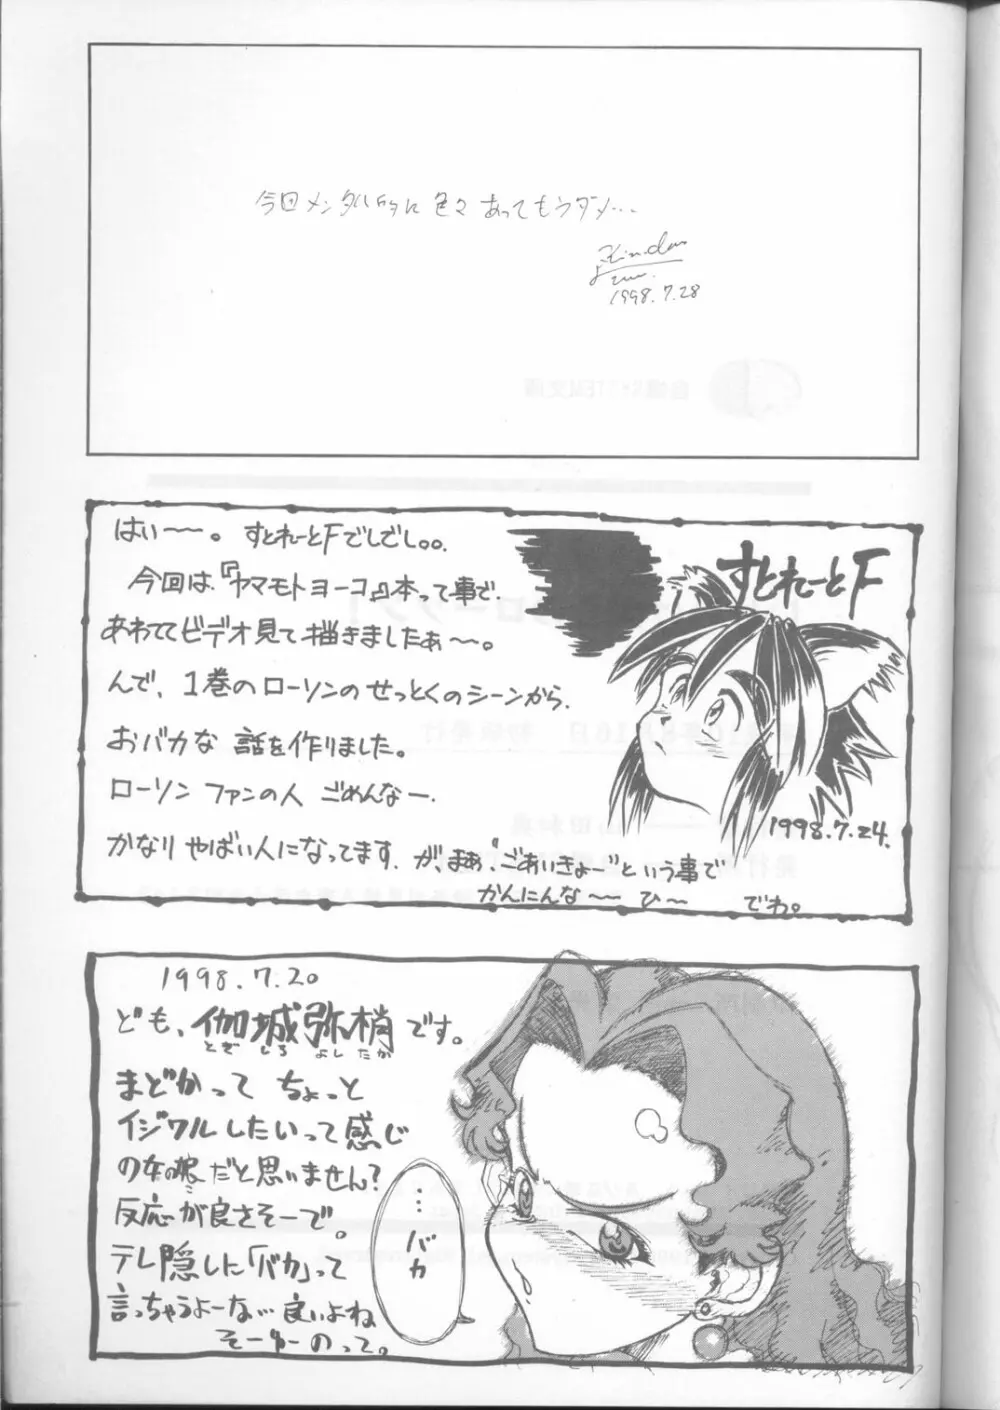 今回メンタル的に色々あってもうダメ…
1998.7.28
はい〜〜。すとれーとFでしでし。。
すとれーとF
今回は、『ヤマモトヨーコ』本って事で
あわててビデオ見て描きましたぁ〜〜。
んで、1巻のローソンのせっとくのシーンから、
おバカな 話を作りました。
ローソン ファンの人 ごめんなー。
かなり やばい人になってます。が、まぁ、"ごあいきょー"という事で
かんにんな〜〜 ひ〜〜 でわ。
1998.7.24.
1998.7.20
ども、伽城弥梢です。
とぎ しろ よしたか
まどかって ちょっと
イジワルしたいって感じ
の女の娘だと思いません?
反応が良さそーで。
テレ隠しに「バカ」って
言っちゃうよーな… 良いよね
そーゆーのって。
…バカ